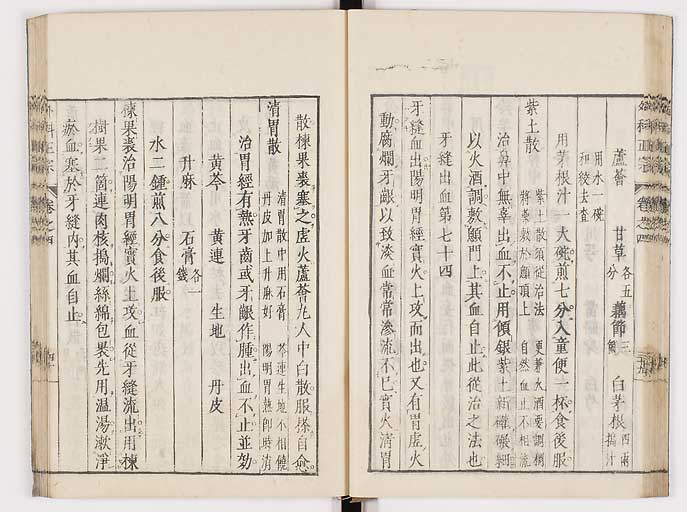 蘆薈 甘草各五分 藕節三個 白茅根四兩搗汁
用水一碗
和絞去查
用茅根汁一大碗煎七分入童便一杯食後服
紫土散 紫土散須從治法 更兼火酒要調稠
將蒸敷於顖頂上 自然血止不相流
治鼻中無辜出血不止用傾銀紫土新罐碾細
以火酒調敷顖門上其血自止此從治之法也
牙縫出血第七十四
牙縫出血陽明胃經實火上攻而出也又有胃虛火
動腐爛牙齦以致淡血常常滲流不已實火清胃
散楝果裘塞之虛火蘆薈丸人中白散服搽自愈
清胃散 清胃散中用石膏 芩連生地不相饒
丹皮加上升麻好 陽明胃熱即時消
治胃經有熱牙齒或牙齦作腫出血不止並効
黃芩 黃連 生地 丹皮
升麻 石膏各一錢
水二鍾煎八分食後服
楝果裘治陽明胃經實火上攻血從牙縫流出用楝
樹果二箇連肉核搗爛絲綿包裹先用溫湯漱淨
瘀血塞於牙縫內其血自止
外科正宗 卷之四
外科正宗 卷之四